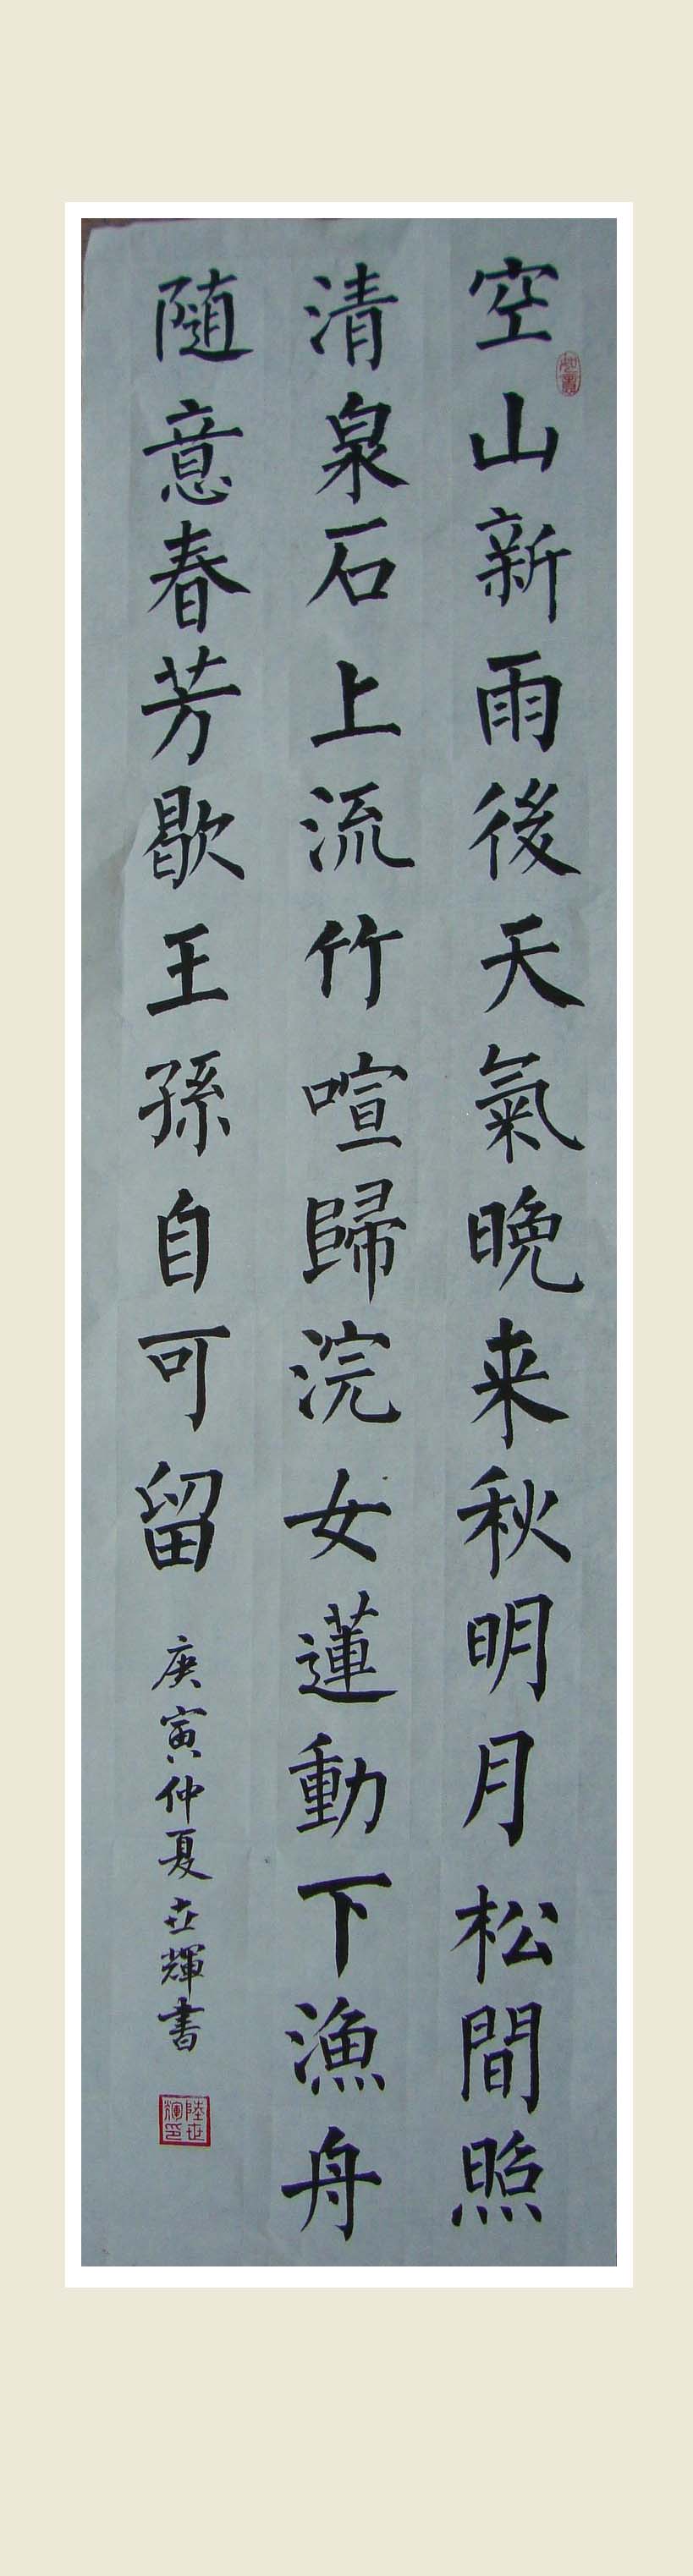 空山新雨後天氣晚来秋明月松間照
清泉石上流竹喧歸浣女蓮動下漁舟
随意春芳歇王孫自可留
庚寅仲夏世輝書
陸世輝印